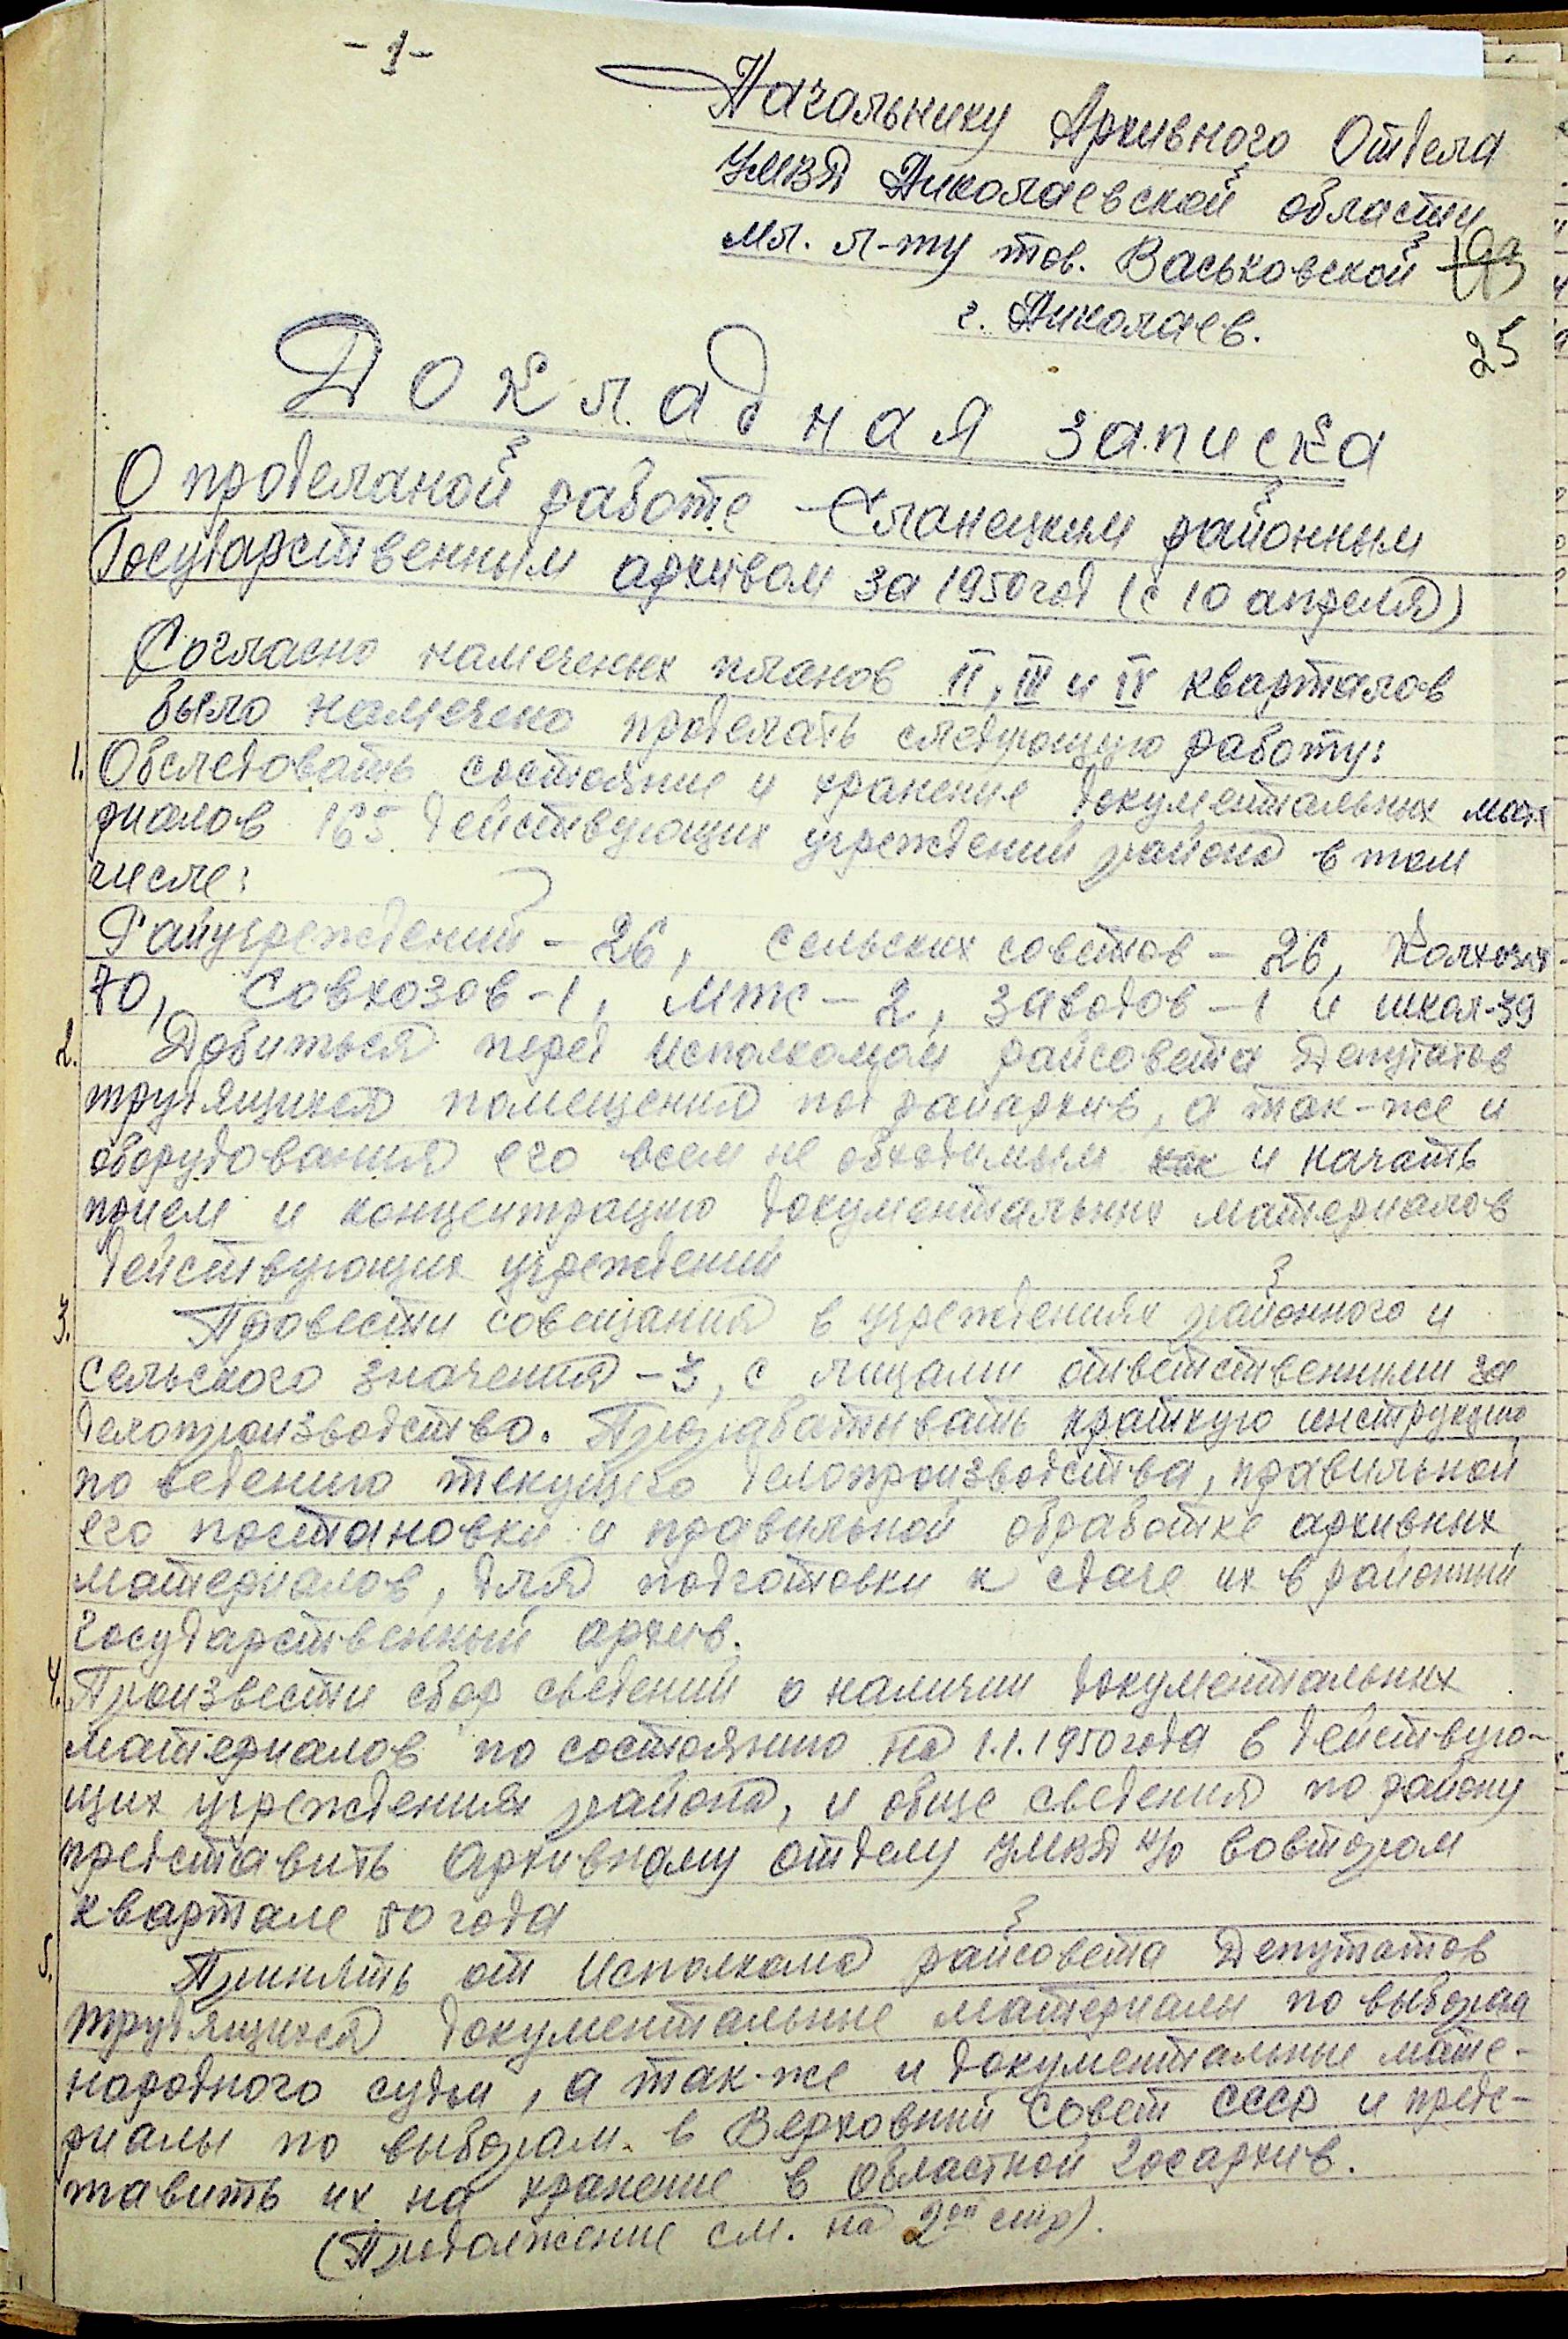 - 1 -
Начальнику Архивного Отдела
УМВД Николаевской области
мл. л-ту тов. Васьковской
25
г. Николаев.
Докладная записка
О проделаной работе Еланецким районным
Государственным архивом за 1950 год (с 10 апреля)
Согласно намеченых планов II, III и IV кварталов
было намечено проделать следующую работу:
1. Обследовать состояние и хранение документальных мате
риалов 165 действующих учреждений района в том
числе:
Райучреждений - 26, сельских советов - 26, Колхозов -
70, Совхозов - 1, МТС - 2, заводов - 1 и школ - 39
2. Добиться перед исполкомом райсовета Депутатов
трудящихся помещения под райархив, а так-же и
оборудования его всем не обходимым как и начать
прием и концентрацию документальных материалов
действующих учреждений
3. Провести совещания в учреждениях районного и
сельского значения - 3, с лицами ответственными за
делопроизводство. Прорабатывать краткую инструкцию
по ведению текущего делопроизводства, правильной
его постановки и правильной обработке архивных
материалов, для подготовки к сдаче их в районный
государственный архив.
4. Произвести сбор сведений о наличии документальных
материалов по состоянию на 1.1.1950 года в действую-
щих учреждениях района, и обще сведения по району
представить Архивному отделу УМВД н/о вовтором
квартале 50 года
5. Принять от Исполкома райсовета Депутатов
трудящихся документальные материалы по выборам
народного судьи, а так-же и документальные мате-
риалы по выборам в Верховный Совет СССР и предс-
тавить их на хранение в областной госархив.
(Продолжение см. на 2ой стр).